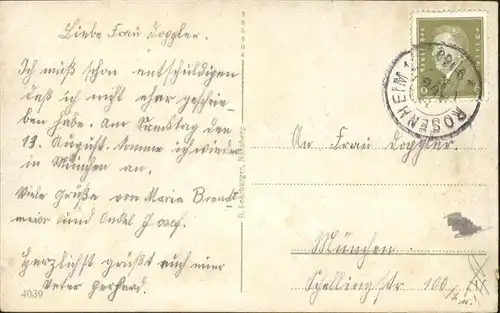 Liebe Frau Doppler.
Ich muß schon entschuldigen
daß ich nicht eher geschrie-
ben habe. Am Samstag den
13. August. komme ich wieder
in München an.
Viele Grüße von Maria
meier und Onkel Josef.
Herzlichst grüßt euch
Peter Gerhard.
4039
Nürnberg.
ROSENHEIM
An Frau Doppler.
München
Schellingstr 100